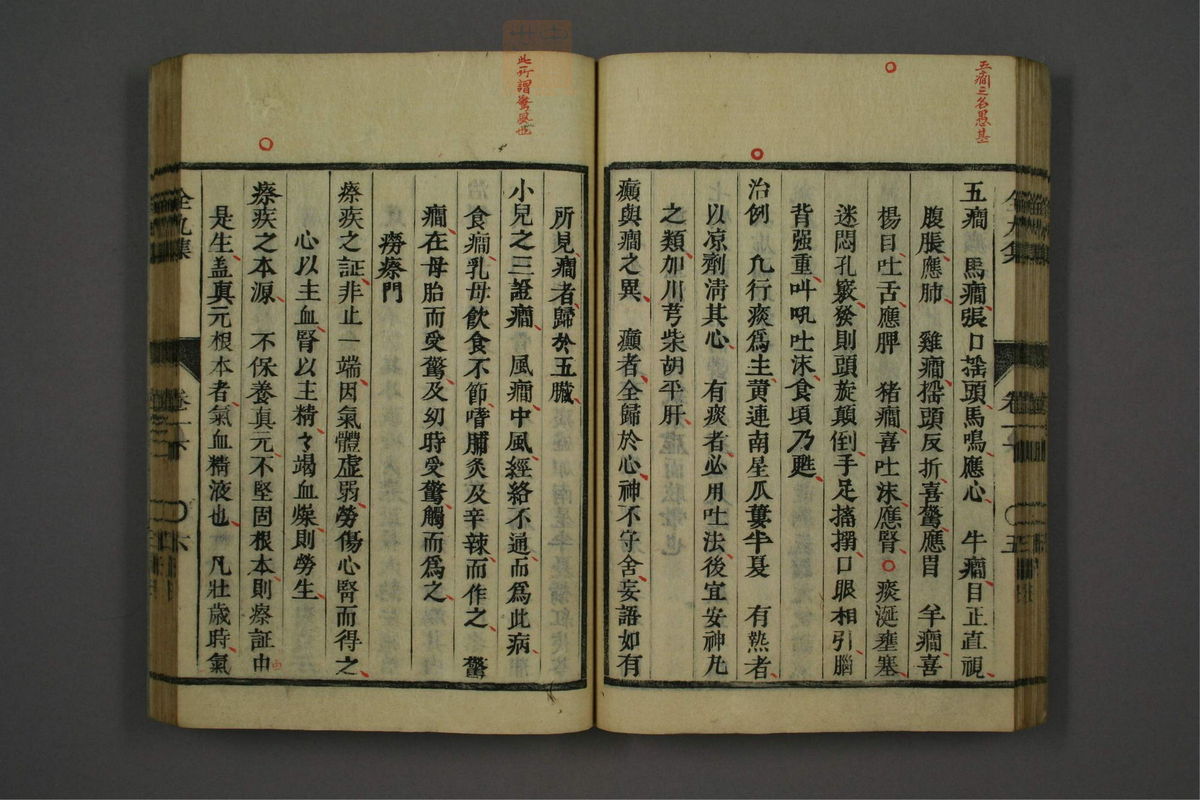 五癇之名愚甚
五癇　馬癇張口搖頭馬鳴應心　牛癇目正直視
腹脹應肺　雞癇搖頭反折喜驚應胃　羊癇喜
楊目吐舌應脾　猪癇喜吐沫應腎　痰涎壅塞
迷悶孔竅發則頭旋顛倒手足搐搦口眼相引腦
背强重叫吼吐沫食頃乃甦
治例　凢行痰爲主黄連南星瓜蔞半夏　有熱者
以凉劑清其心　有痰者必用吐法後宜安神丸
之類加川芎柴胡平肝
癲與癇之異　癲者全歸於心神不守舍妄語如有
此所謂驚風也
所見癇者歸於五臟
小兒之三證癇　風癇中風經絡不通而爲此病
食癇乳母飲食不節嗜脯炙及辛辣而作之　驚
癇在母胎而受驚及幼時受驚觸而爲之
癆瘵門
瘵疾之証非止一端因氣體虚弱勞傷心腎而得之
心以主血腎以主精々竭血燥則勞生
瘵疾之本源　不保養真元不堅固根本則瘵証由
由
是生盖真元根本者氣血精液也　凡壯歳時氣
全九集
卷一六
六
五